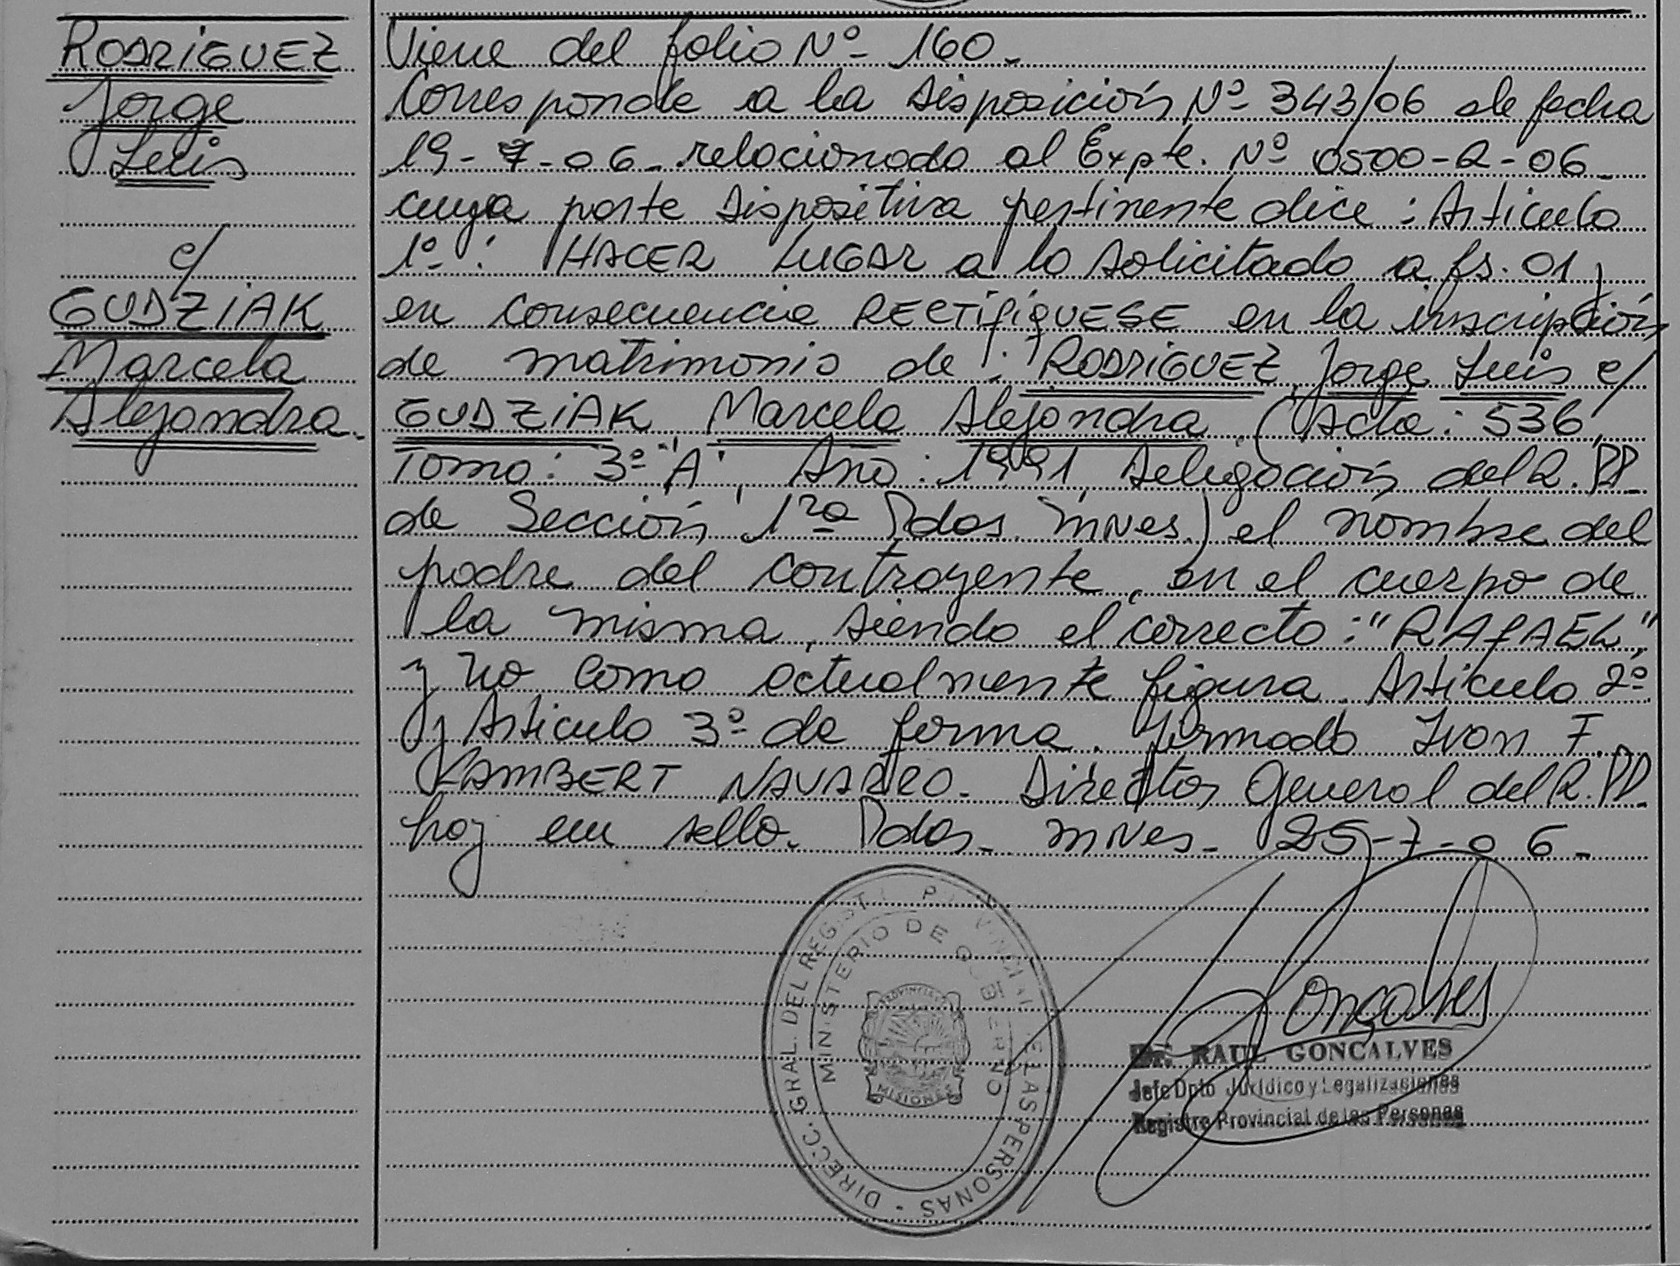 RODRIGUEZ
Jorge
Luis
c/
GUDZIAK
Marcela
Alejandra.
Viene del folio Nº 160.
Corresponde a la Disposición Nº 343/06 de fecha
19-7-06 relacionado al Expte. Nº 0500-R-06
cuya parte Dispositiva pertinente dice: Artículo
1º: HACER LUGAR a lo solicitado a fs. 01,
en consecuencia RECTIFIQUESE en la inscripción
de matrimonio de: RODRIGUEZ, Jorge Luis c/
GUDZIAK Marcela Alejandra, (Acta: 536,
Tomo: 3º "A", Año: 1991, Delegación del R.PP.
de Sección 1ra Pdas. Mnes.) el nombre del
padre del contrayente, en el cuerpo de
la misma, siendo el correcto: "RAFAEL",
y no como actualmente figura. Artículo 2º
y Artículo 3º de forma. Firmado Ivan F.
LAMBERT NAVARRO. Director General del R.PP.
hay un sello. Pdas. Mnes. 25-7-06.
DIRECC. GRAL. DEL REGIST. PROVINCIAL DE LAS PERSONAS -
MINISTERIO DE GOBIERNO
PROVINCIA DE
MISIONES
Goncalves
Dr. RAUL GONCALVES
Jefe Dpto Jurídico y Legalizaciones
Registro Provincial de las Personas